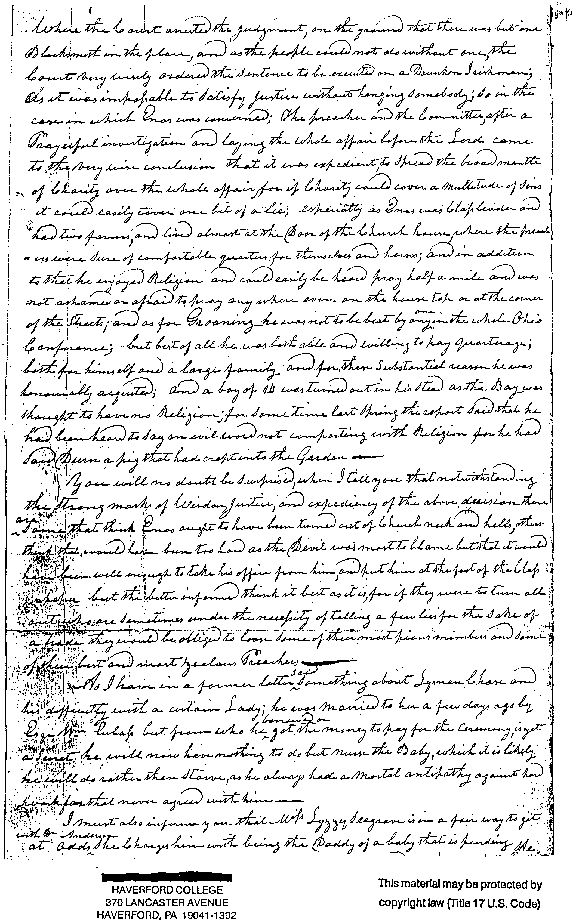 Where the Court arrested the judgment, on the ground that there was but one
Blacksmith in the place, and as the people could not do without one, the
Court very wisely ordered the sentence to be executed on a Drunken Irishman;
As it was improbable to satisfy Justice without hanging somebody; so in the
case in which Enos was concerned; The preacher and the Committy after a
Prayerful investigation and laying the whole affair before the Lord came
to the very wise conclusion that it was expedient to spread the broad mantle
of Charity over the whole affair, for if Charity could cover a multitude of Sins
it could easily cover one bit of a lie; especially as Enos was Clapleader and
had two farms, and lived almost at the Door of the Church house, where the preach
ers were sure of comfortable quarters for themselves and horses; and in addition
to that he enjoyed Religion and could easily be heard pray half a mile and was
not ashamed or afraid to pray any where even on the house top or at the corner
of the Streets; and as for Groaning he was not to be beat by any in the whole Ohio
Conference; but best of all he was both able and willing to pay quarterage;
both for himself and a large family and for these Substantial reasons he was
honourably acquited; and a boy of 14 was turned out in his stead as the Boy was
thought to have no Religion; for some time last Spring the report said that he
had been heard to say an evil word not comporting with Religion for he had
said Durn a pig that had crept into the Garden
You will no doubt be surprised when I tell you that notwithstanding
the strong mark of Wisdom, Justice, and expediency of the above decision there
are some that think Enos ought to have been turned out of Church neck and heels, others
think that would have been too bad as the Devil was most to blame but that it would
have been well enough to take his office from him and put him at the foot of the Class
paper but the better informed think it best as it is, for if they were to turn all
out who are sometimes under the necessity of telling a few lies for the sake of
a trade they would be obliged to loose some of their most pious members and some
of their best and most zealous Preachers
As I have in a former letter said something about Lyman Chase and
his difficulty with a certain Lady; he was married to her a few days ago by
Esqr Wm but from who he borrowed or got the money to pay for the Ceremony is yet
a Secret, he will now have nothing to do but nurse the Baby, which it is likely
he will do rather than Starve, as he always had a Mortal antipathy against hard
work for that never agreed with him
I must also inform you that Mrs Lyzzy Seagram is in a fair way to get
with Wm Anderson
at odds, she charges him with being the Daddy of a baby that is pending She
HAVERFORD COLLEGE
370 LANCASTER AVENUE
HAVERFORD, PA 19041-1392
This material may be protected by
copyright law (Title 17 U.S. Code)